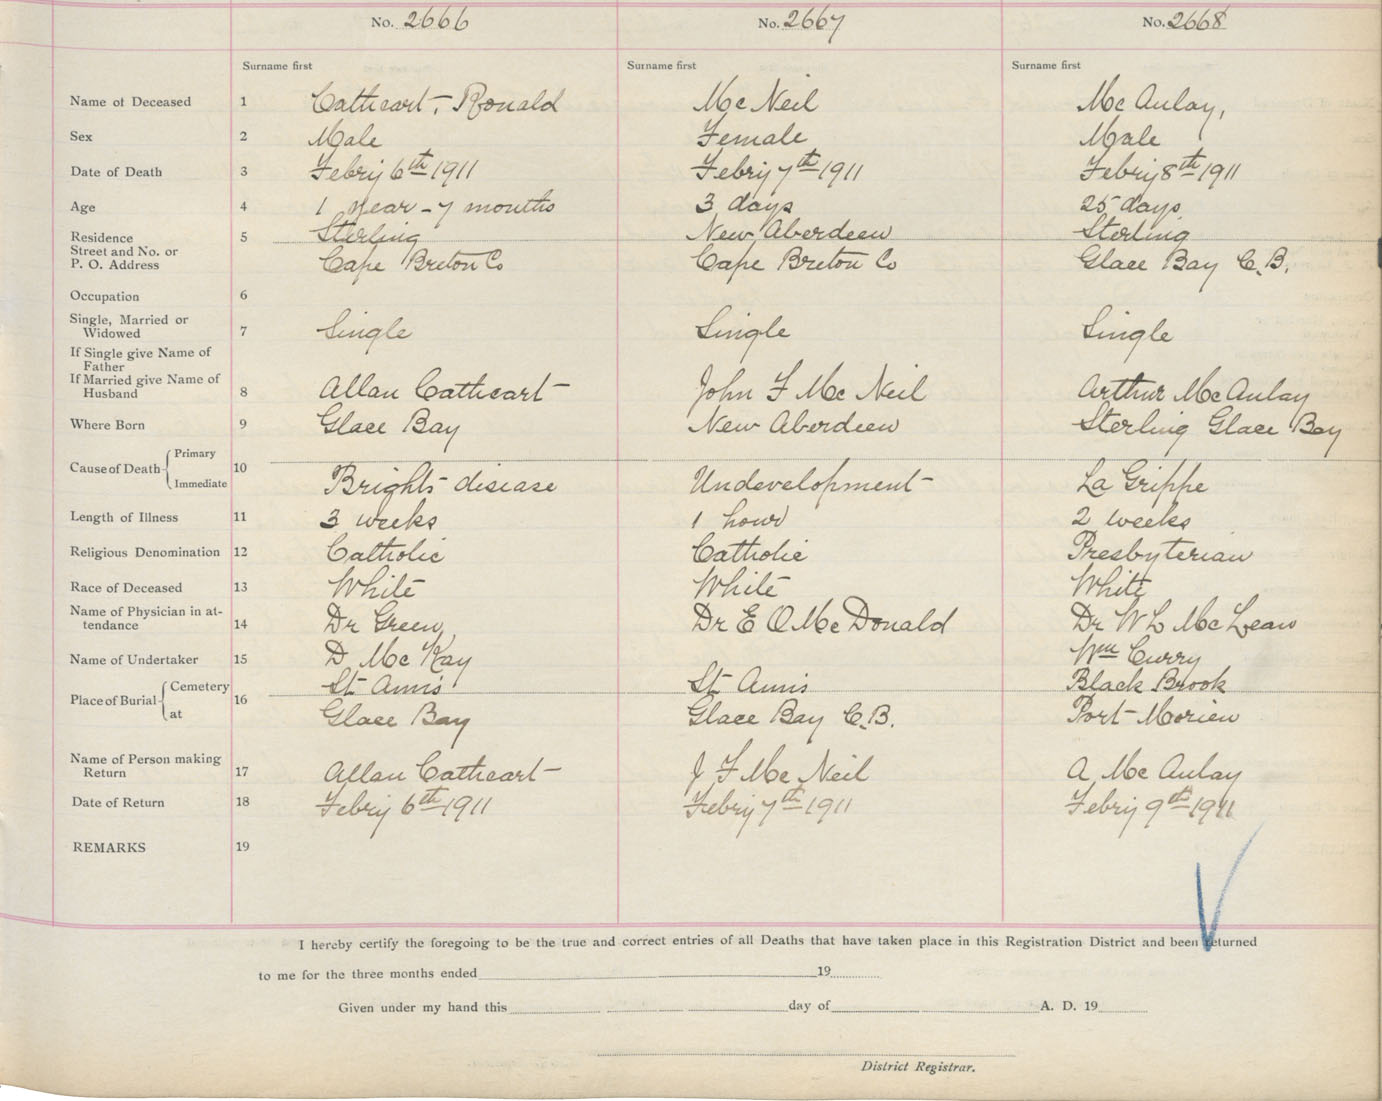 No. 2666 No. 2667 No. 2668
Surname first Surname first Surname first
Name of Deceased 1 Cathcart, Ronald Mc Neil Mc Aulay,
Sex 2 Male Female Male
Date of Death 3 Febry 6th 1911 Febry 7th 1911 Febry 8th 1911
Age 4 1 year - 7 months 3 days 25 days
Residence 5 Sterling New Aberdeen Sterling
Street and No. or
P. O. Address Cape Breton Co Cape Breton Co Glace Bay C.B.
Occupation 6
Single, Married or
Widowed 7 Single Single Single
If Single give Name of
Father
If Married give Name of
Husband 8 Allan Cathcart John F Mc Neil Arthur Mc Aulay
Where Born 9 Glace Bay New Aberdeen Sterling Glace Bay
Cause of Death Primary 10
Immediate Brights disease Undevelopment La Grippe
Length of Illness 11 3 weeks 1 hour 2 weeks
Religious Denomination 12 Catholic Catholic Presbyterian
Race of Deceased 13 White White White
Name of Physician in at-
tendance 14 Dr Green Dr E O Mc Donald Dr W L Mc Lean
Name of Undertaker 15 D Mc Kay Wm Curry
Place of Burial Cemetery 16 St Anns St Anns Black Brook
at Glace Bay Glace Bay C.B. Port Morien
Name of Person making
Return 17 Allan Cathcart J F Mc Neil A Mc Aulay
Date of Return 18 Febry 6th 1911 Febry 7th 1911 Febry 9th 1911
REMARKS 19
I hereby certify the foregoing to be the true and correct entries of all Deaths that have taken place in this Registration District and been returned
to me for the three months ended 19
Given under my hand this day of A. D. 19
District Registrar.